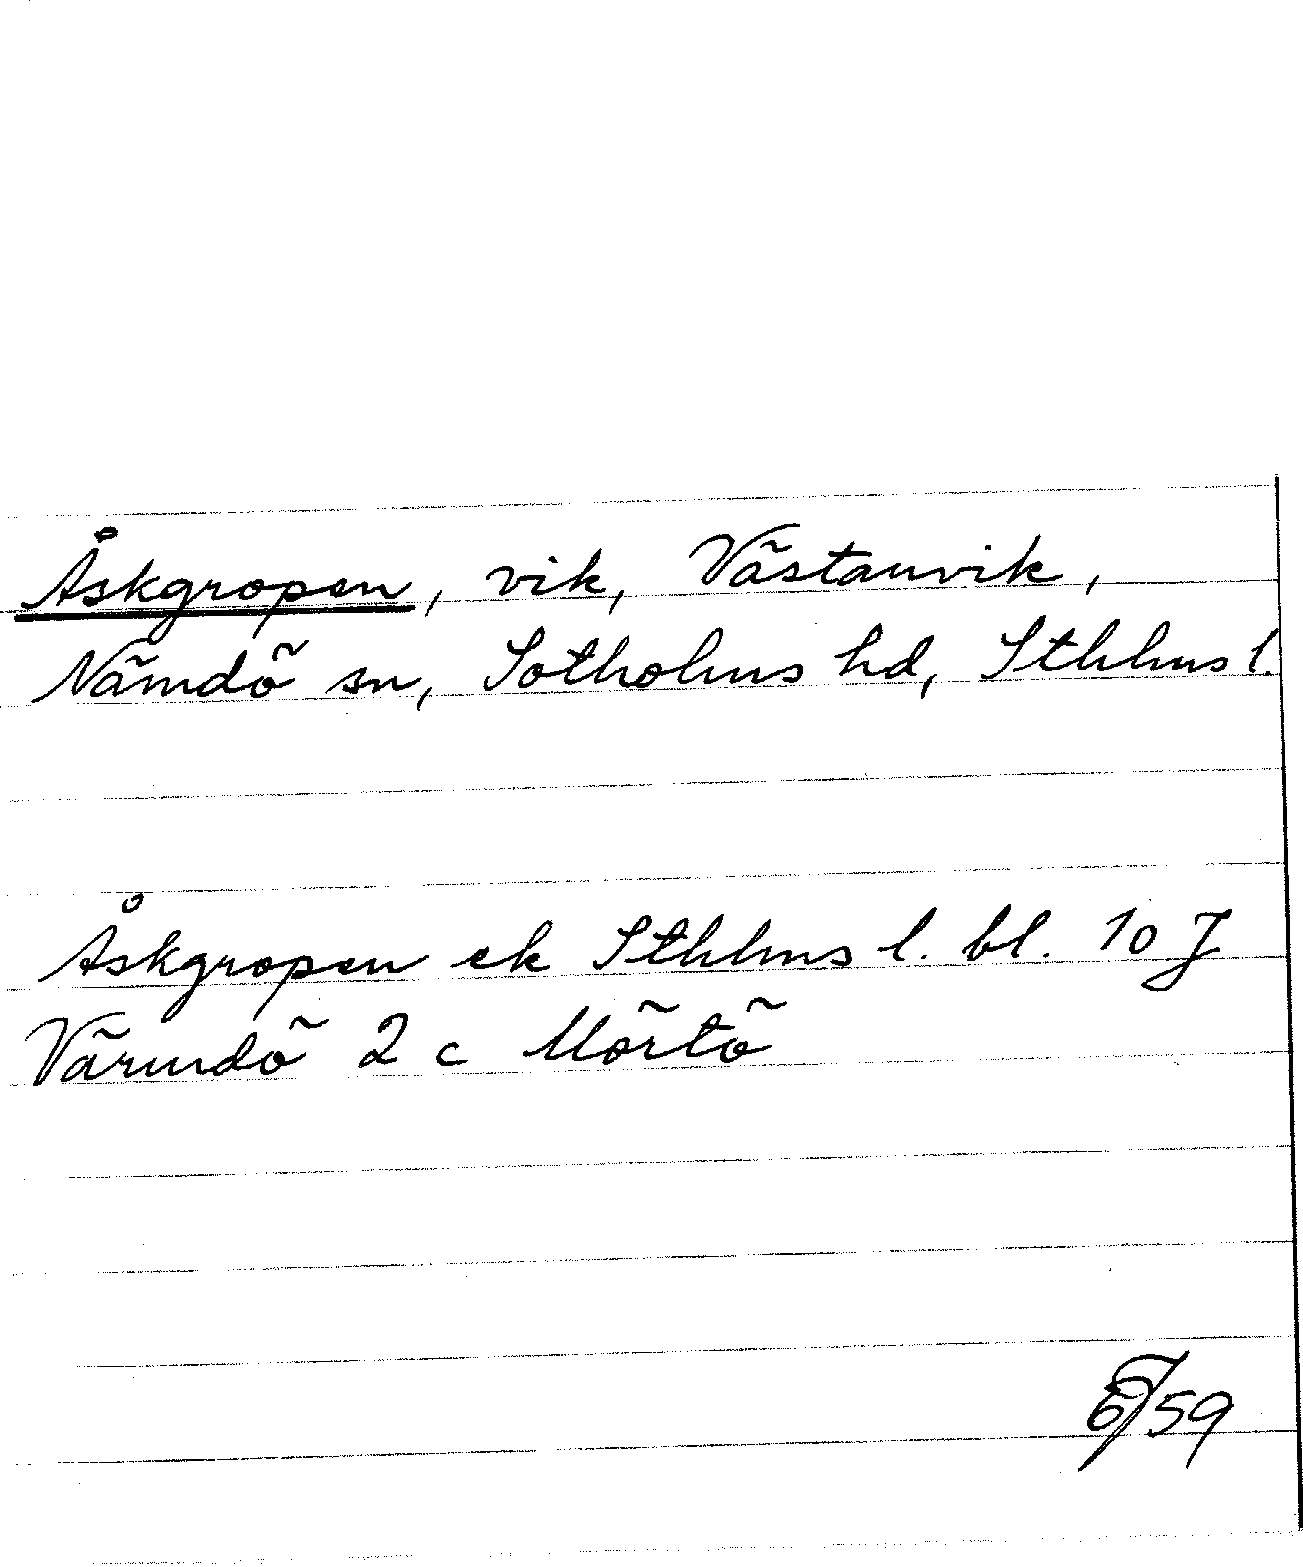 Åskgropen, vik, Västanvik,
Nämdö sn, Sotholms hd, Sthlms l.
Åskgropen ek Sthlms l. bl. 10 J
Värmdö 2 c Mörtö
/59